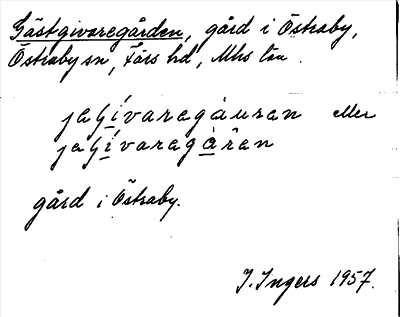 Gästgivaregården, gård i Östraby,
Östraby sn, Färs hd, Mhs län.
eller
gård i Östraby.
J. Ingers 1957.